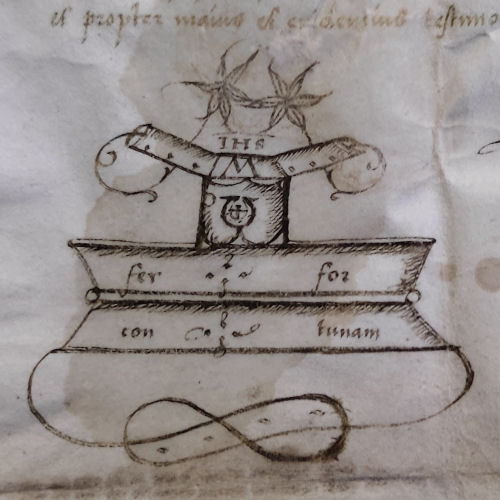 et propter maius et evidentius testimo
IHS
M
fer for
con tunam